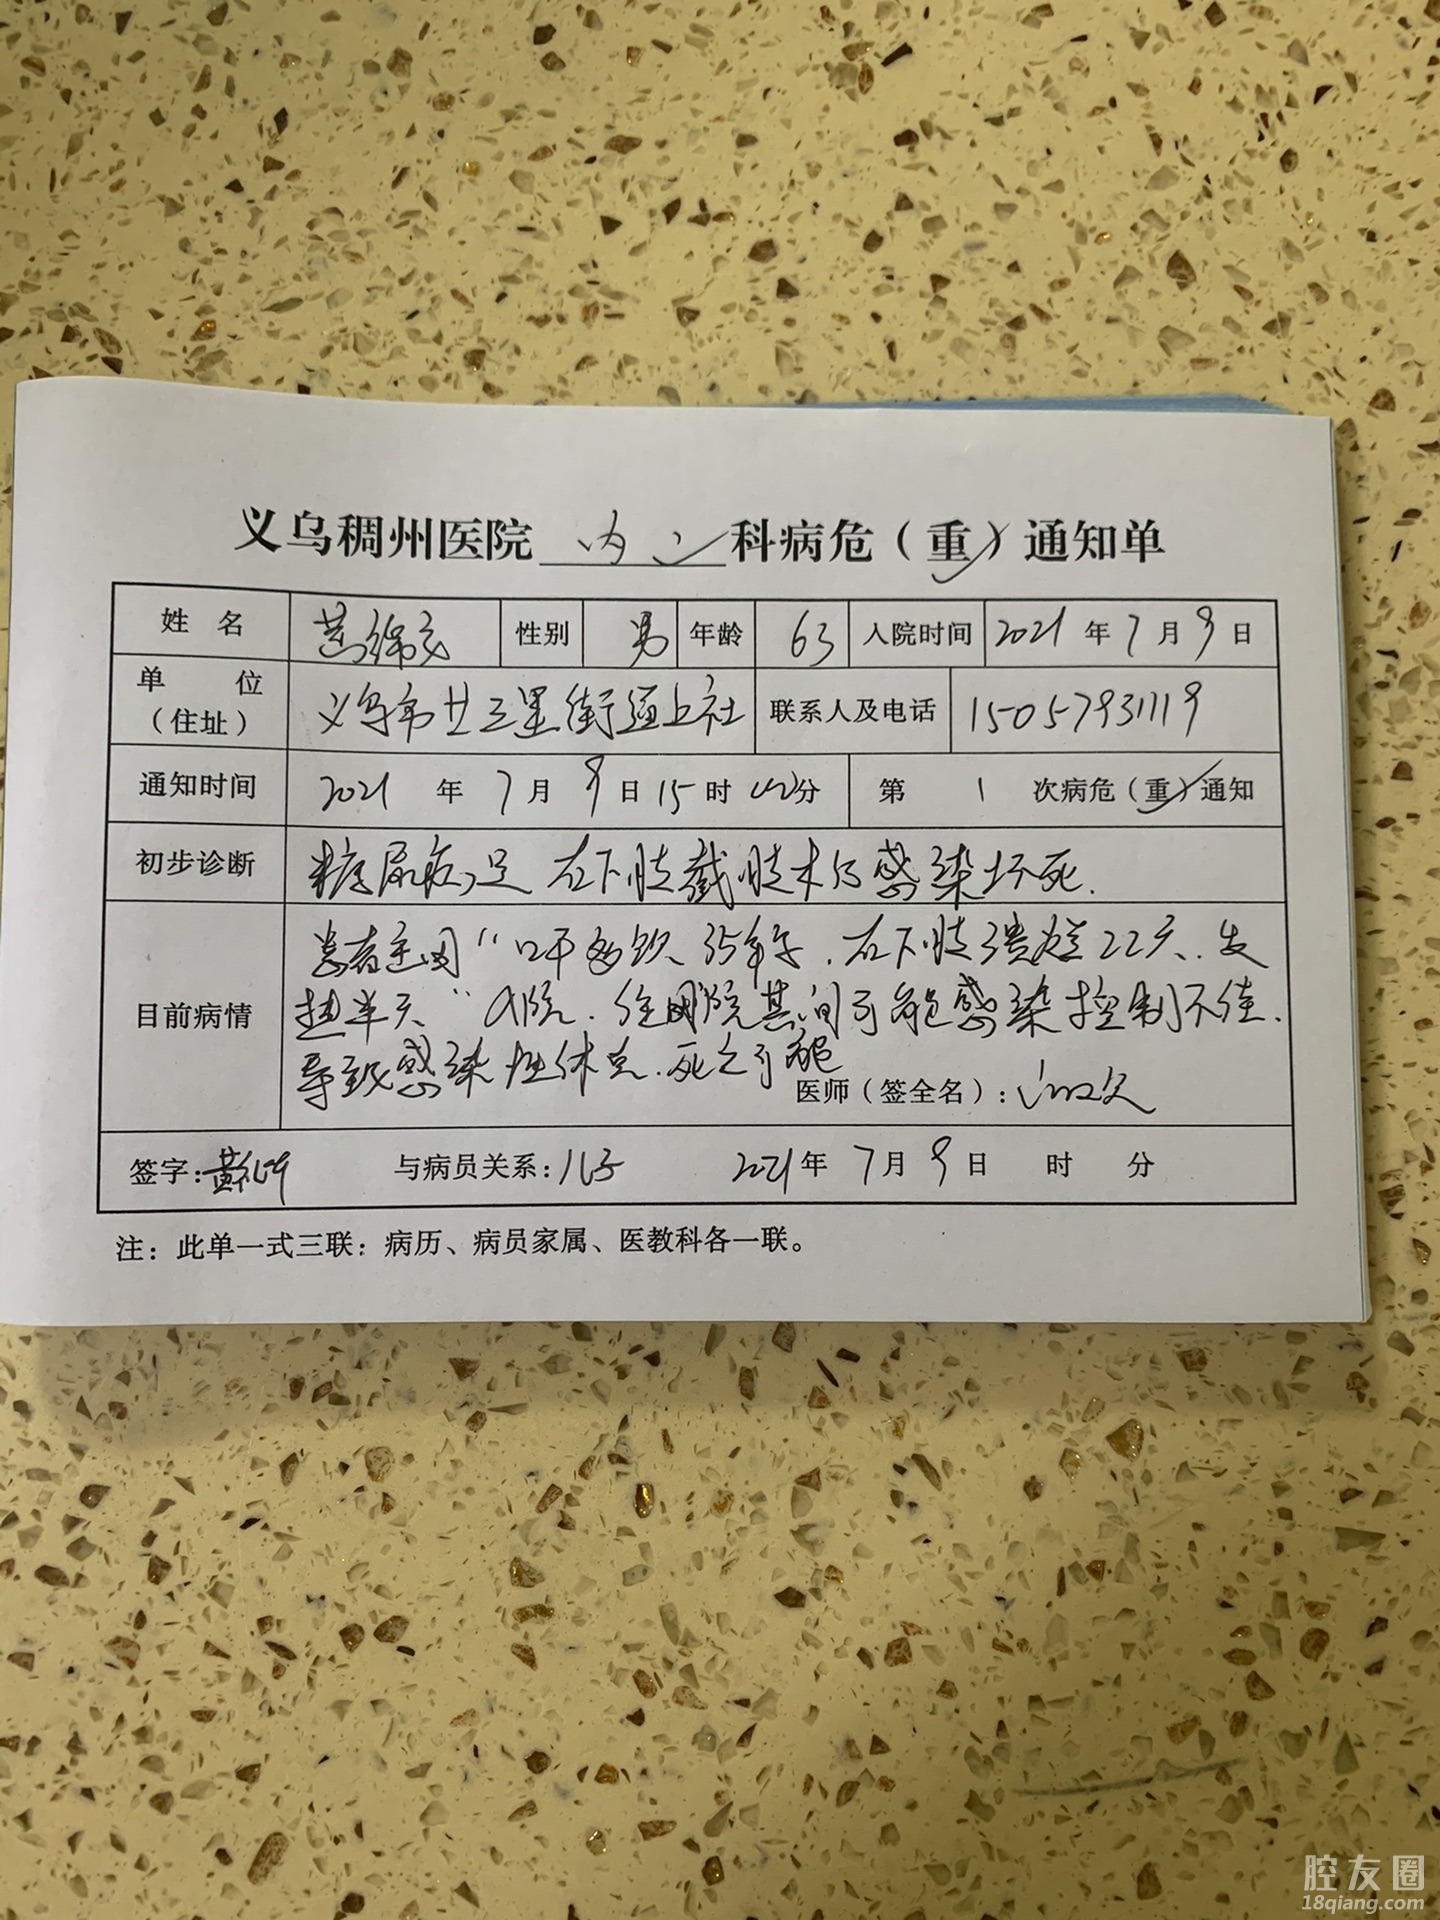 义乌稠州医院 内二 科病危（重）通知单
姓 名 黄 性别 男 年龄 63 入院时间 2021 年 7 月 9 日
单 位（住址） 义乌市廿三里街道上社 联系人及电话 15057931119
通知时间 2021 年 7 月 9 日 15 时 分 第 1 次病危（重）通知
初步诊断 糖尿病足 左下肢截肢术后感染坏死.
患者主因“口干多饮 35年余，左下肢溃烂22天、发
目前病情 热半天”入院.住院其间可能感染控制不佳.
导致感染性休克.死亡可能
医师（签全名）:
签字: 黄 与病员关系: 儿子 2021年 7月 9日 时 分
注：此单一式三联：病历、病员家属、医教科各一联。
腔友圈
18qiang.com